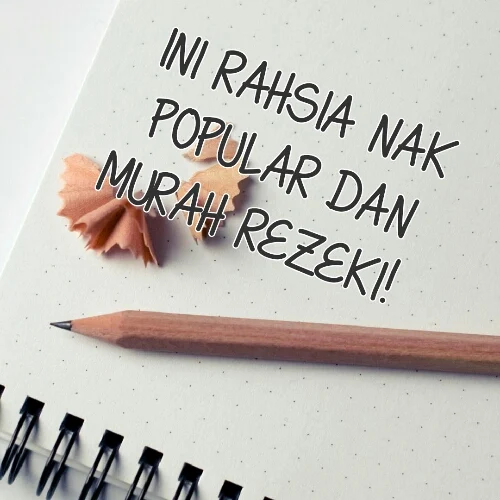 INI RAHSIA NAK
POPULAR DAN
MURAH REZEKI!